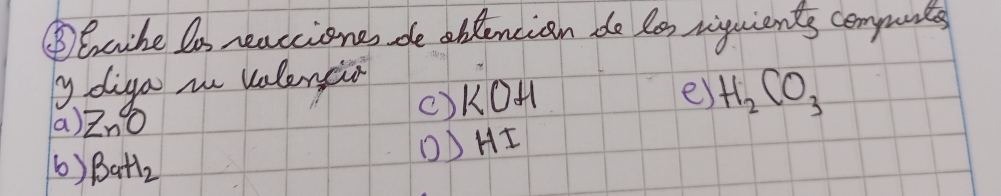 ③ Escribe las reacciones de obtención de los siguients compuestos
y diga su valencia
a) ZnO
b) BaH2
c) KOH
D) HI
e) H2CO3